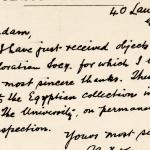 40 Lau
adam,
have just received objects
loration Socy. for which I
most sincere thanks. The
to the Egyptian collection i
The University, on permane
spection.
Yours most se